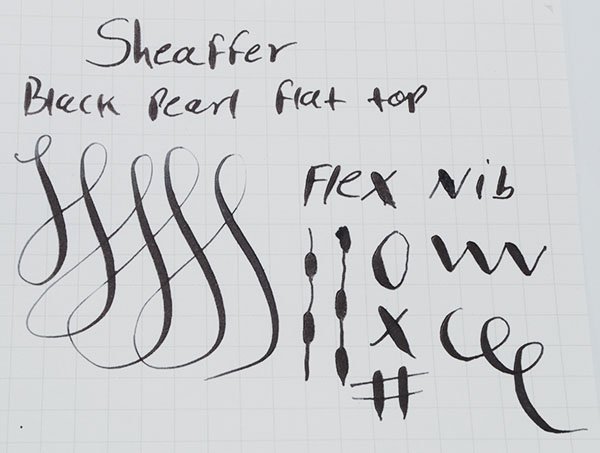 Sheaffer
Black Pearl flat top
Flex Nib
O
X
#